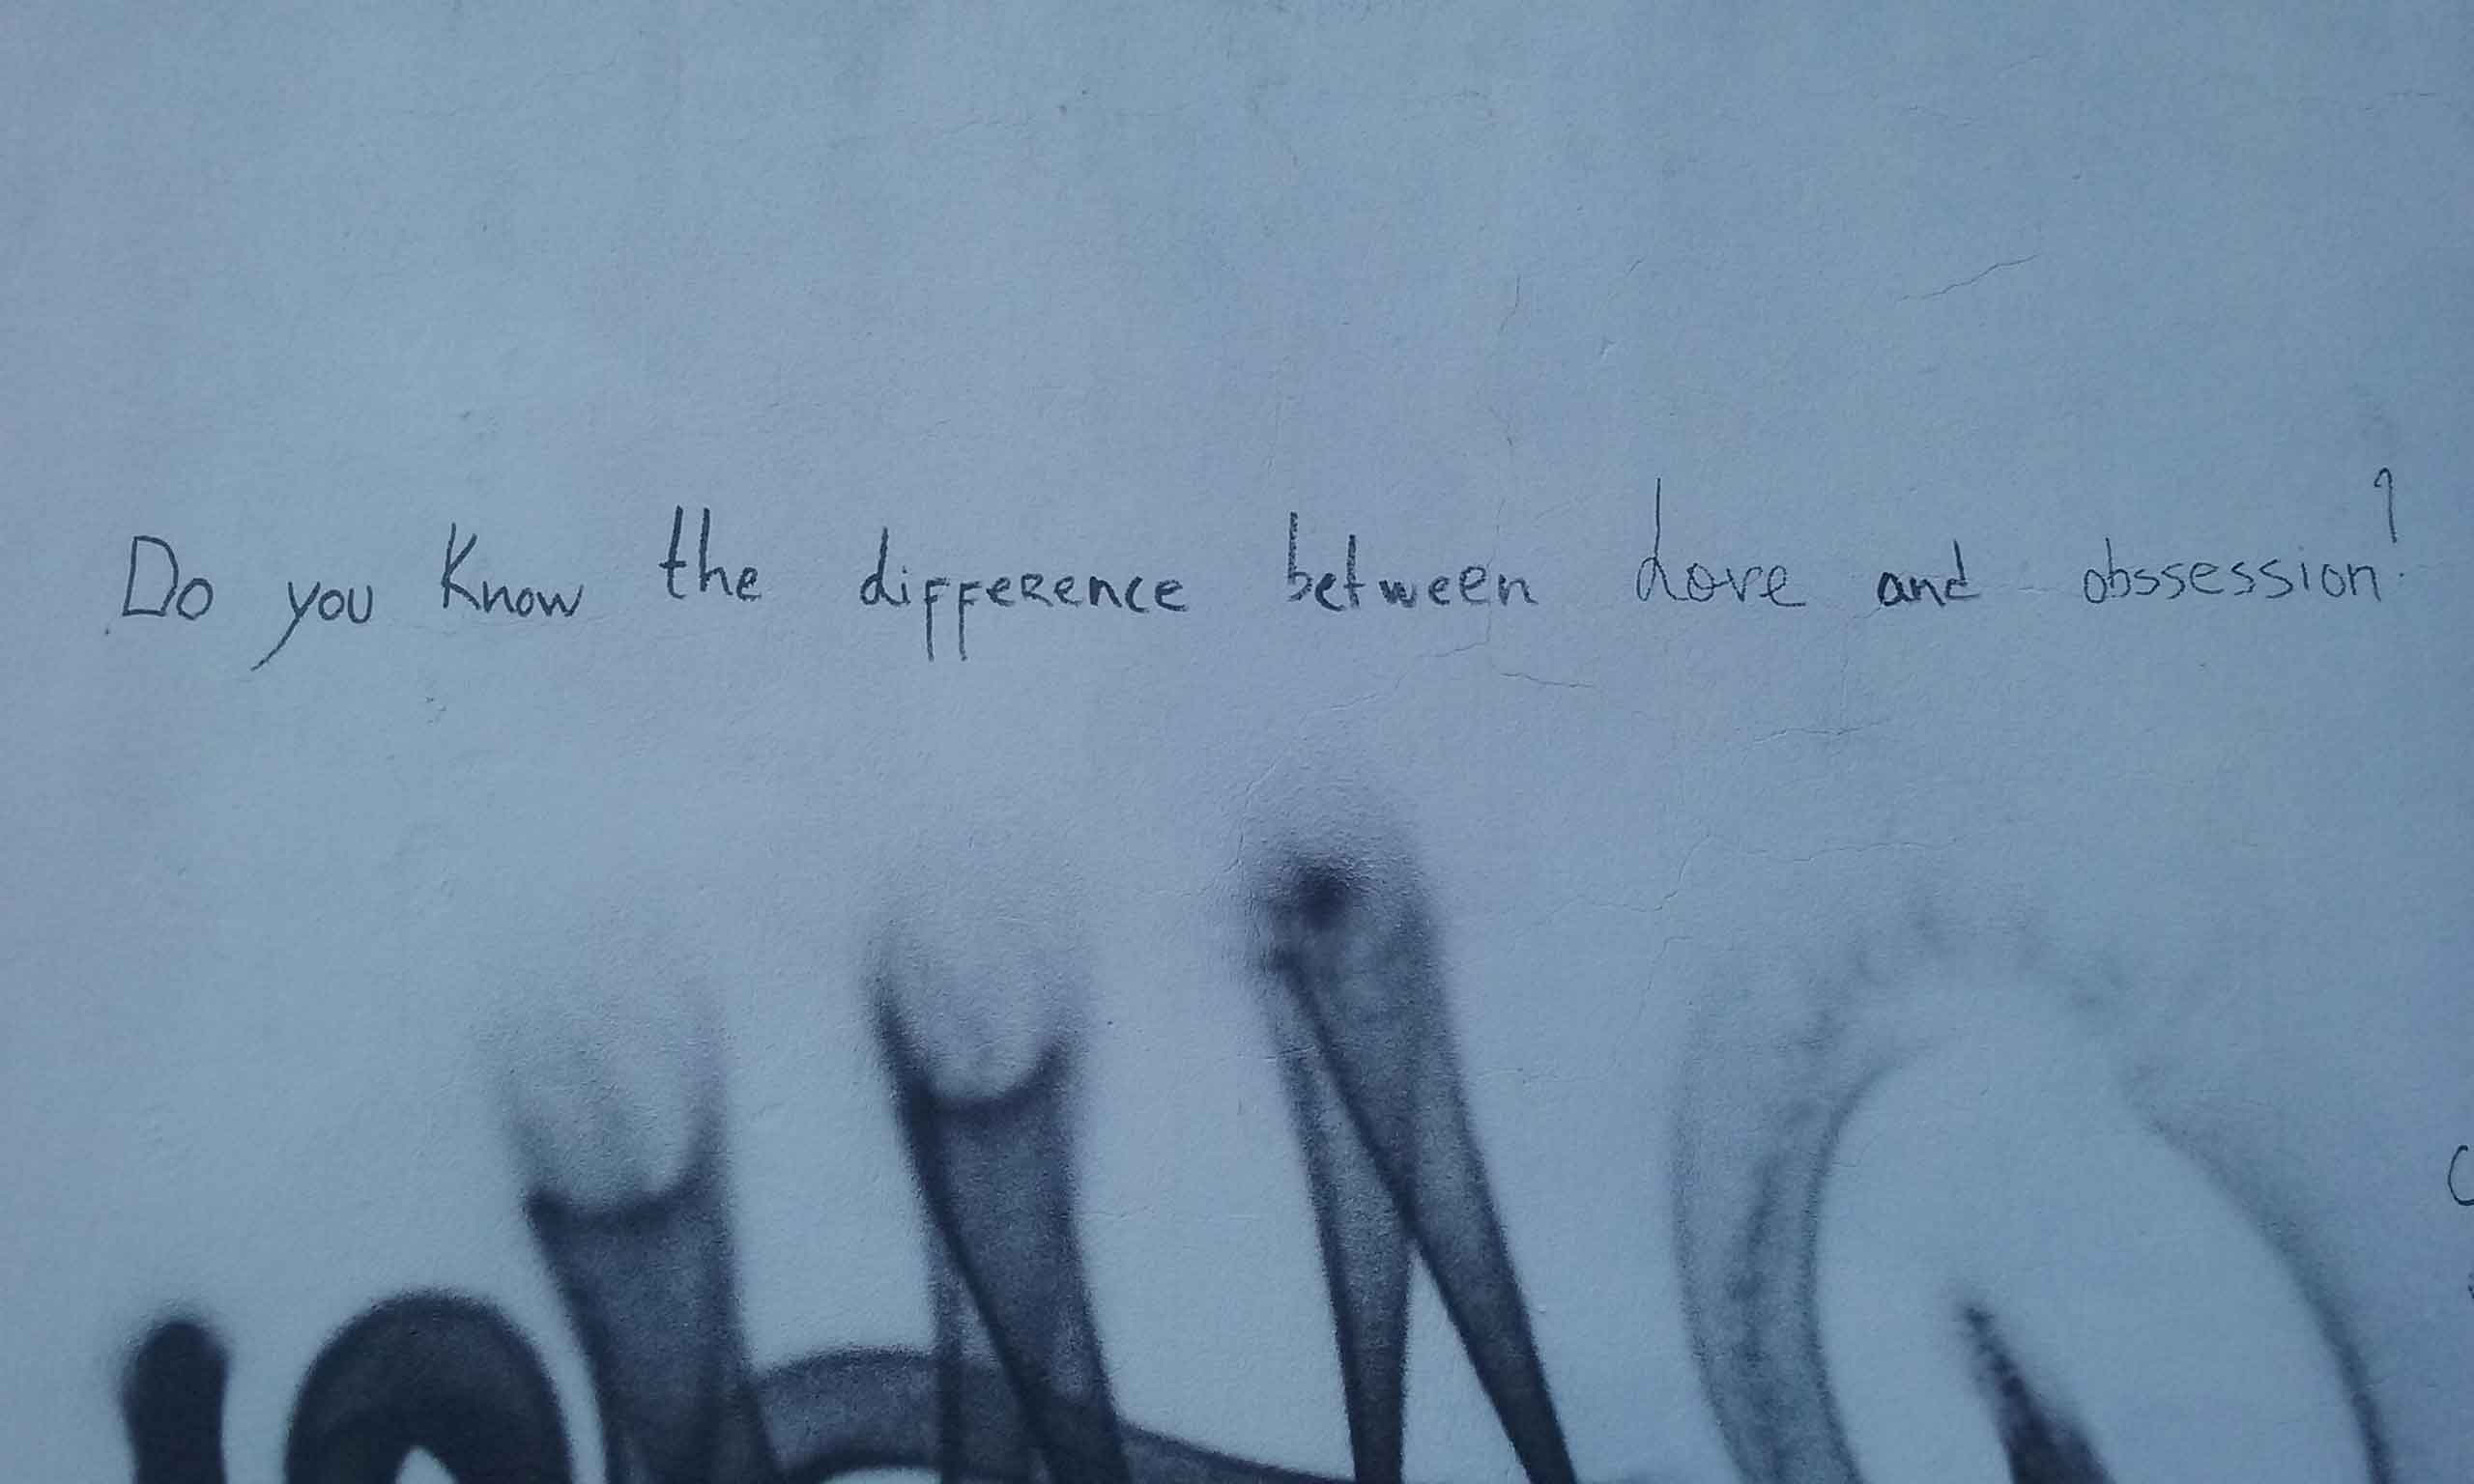 Do you know the difference between Love and obssession?